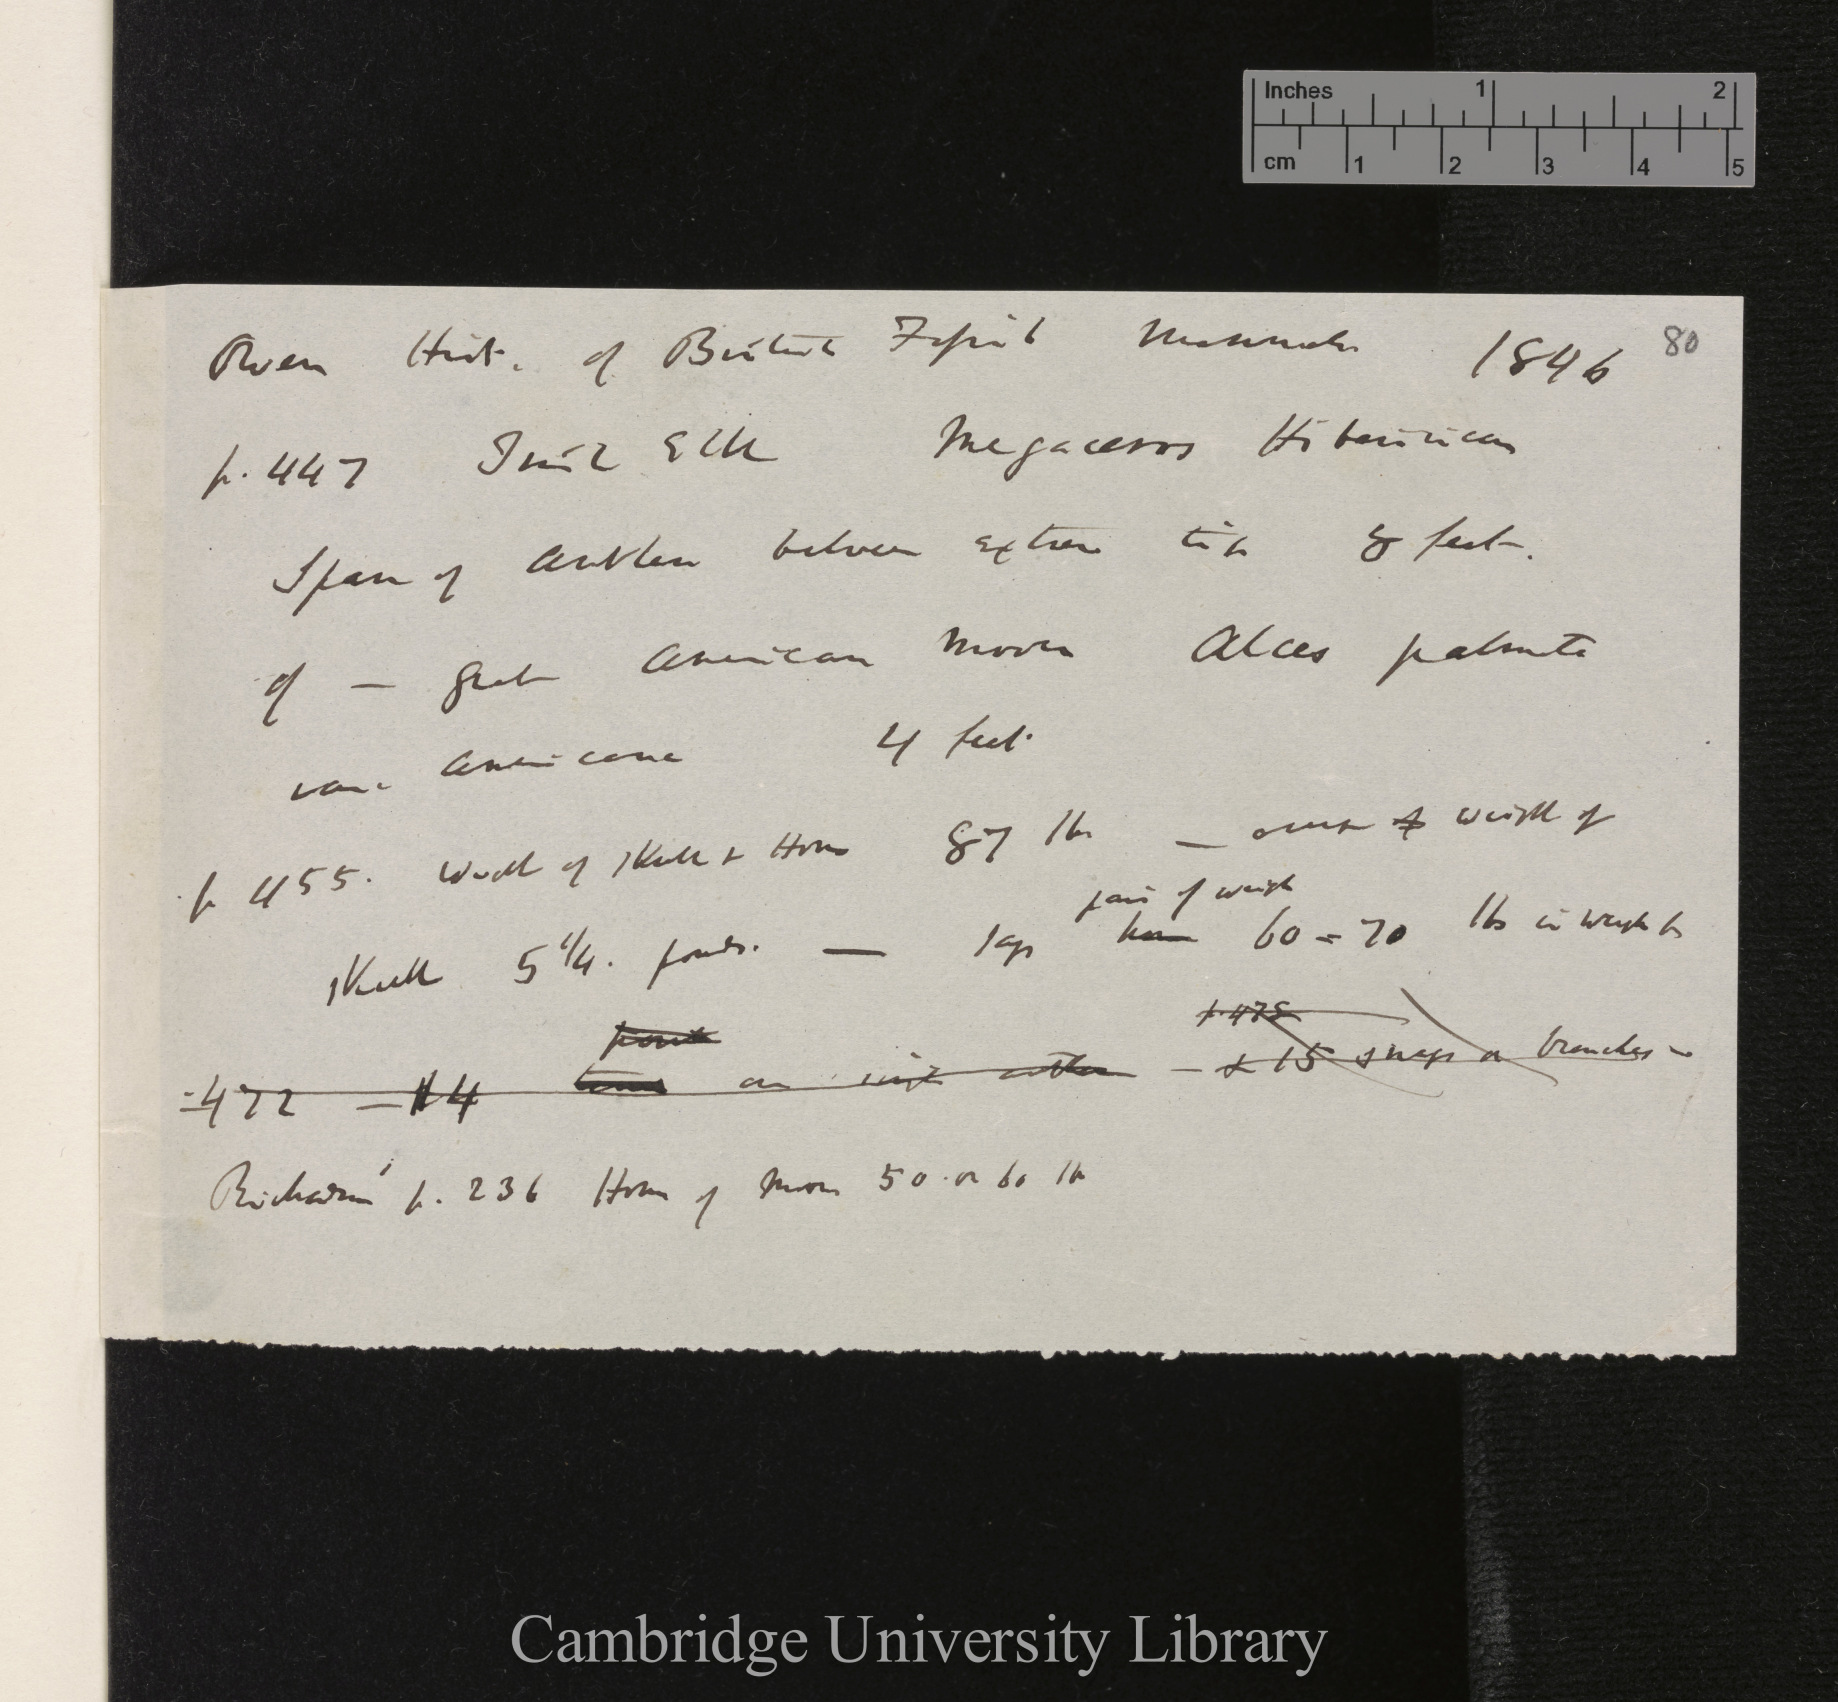 Inches 1 2
cm 1 2 3 4 5
80
Owen Hist. of British Fossil Mammals 1846
p. 447 Irish Elk Megaceros Hibernicus
Span of antlers between extreme tips 8 feet.
of — great American Moose Alces palmata
var. Americana 4 feet
p 455. Weight of skull & Horns 87 lbs — average of weight of
skull 5 1/4. pounds. — says horns pair of weigh 60 = 70 lbs in weight
p. 475
points
-472 — 4 on single antler — & 15 snags or branches —
Richardson p. 236 Horns of Moose 50 or 60 lb
Cambridge University Library